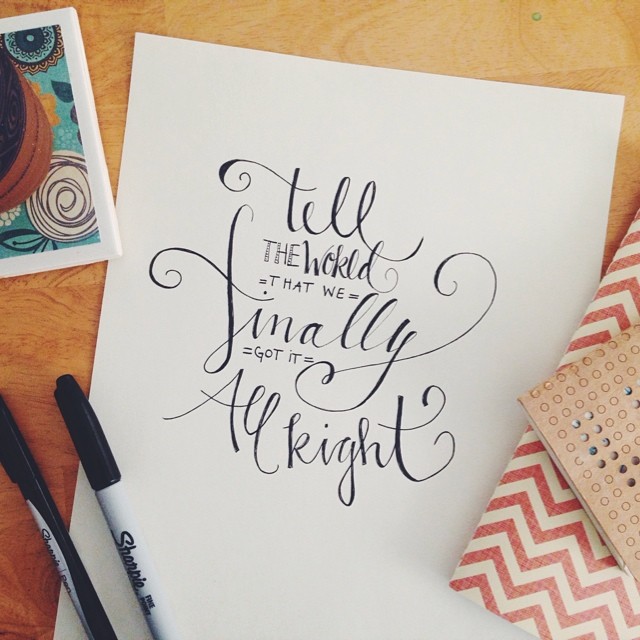 tell
THE WORLD
=THAT WE=
finally
=GOT IT=
All Right
Sharpie
FINE
Sharpie